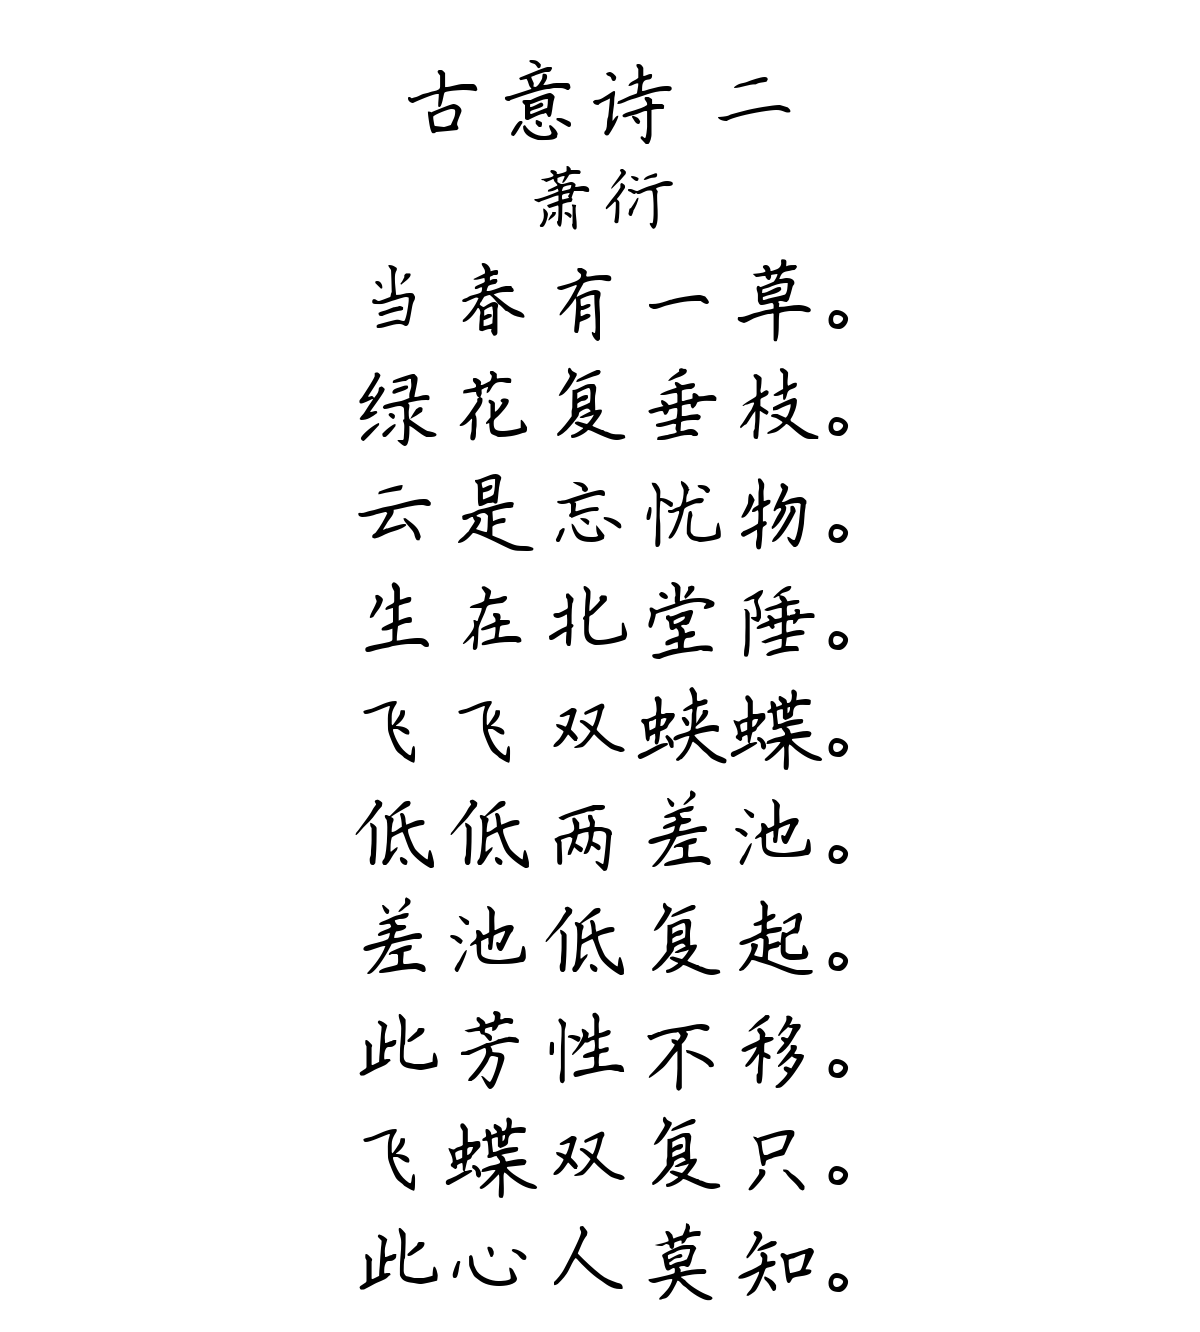 古意诗 二
萧衍
当春有一草。
绿花复垂枝。
云是忘忧物。
生在北堂陲。
飞飞双蛱蝶。
低低两差池。
差池低复起。
此芳性不移。
飞蝶双复只。
此心人莫知。